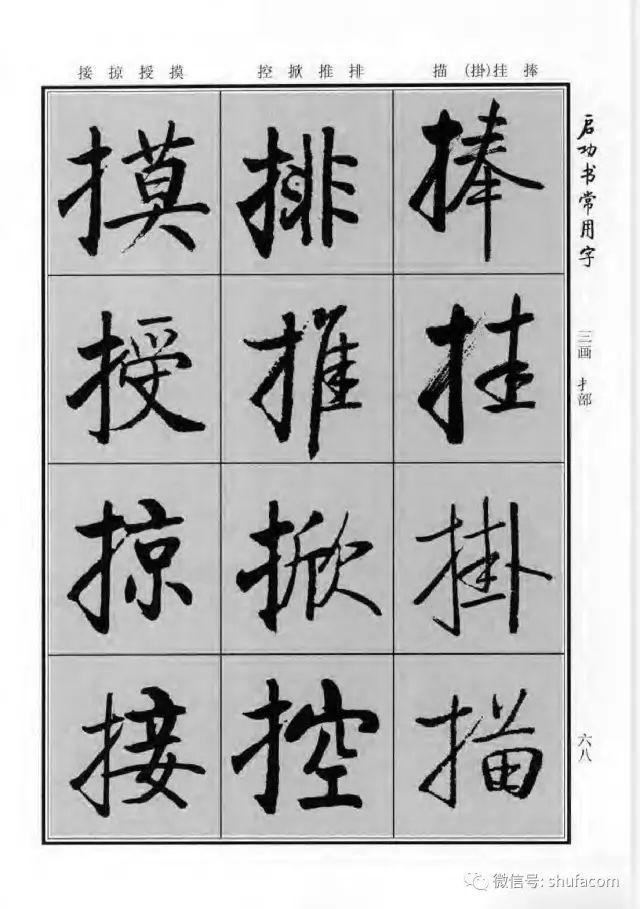 启功书常用字
三画 扌部
六八
捧挂(掛)描
排推掀控
摸授掠接
捧
挂
掛
描
排
推
掀
控
摸
授
掠
接
微信号: shufacom